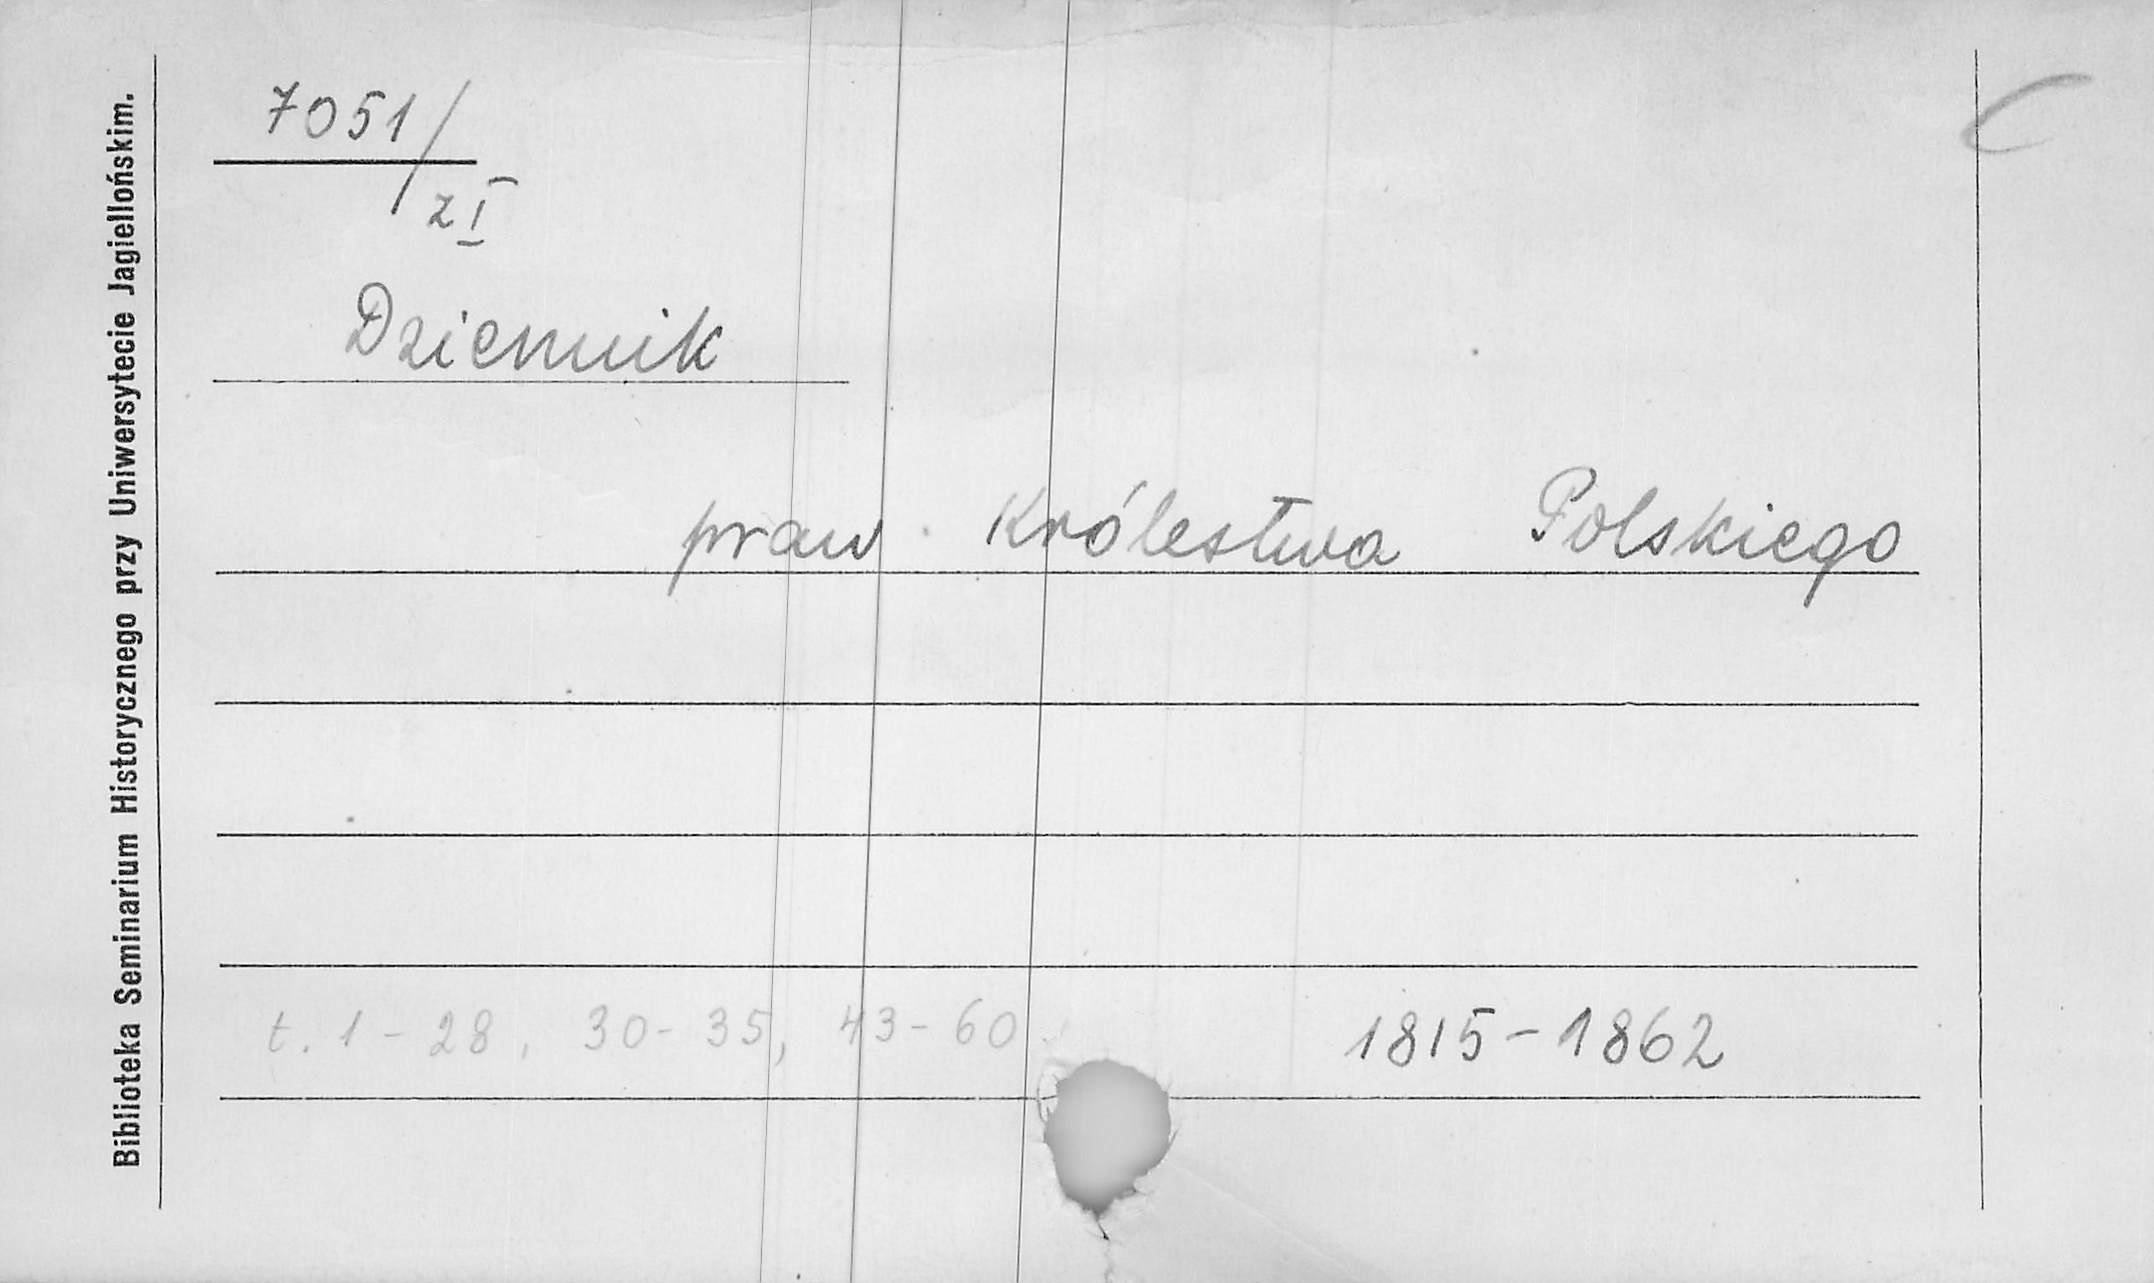 Biblioteka Seminarium Historycznego przy Uniwersytecie Jagiellońskim.
7051/
z I
Dziennik
praw Królestwa Polskiego
t. 1 - 28, 30 - 35, 43 - 60
1815 - 1862